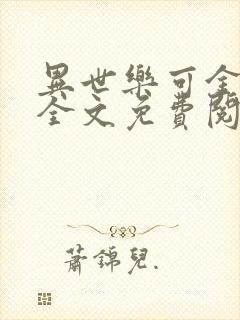 異世樂可全
全文免費閱
蕭錦兒.